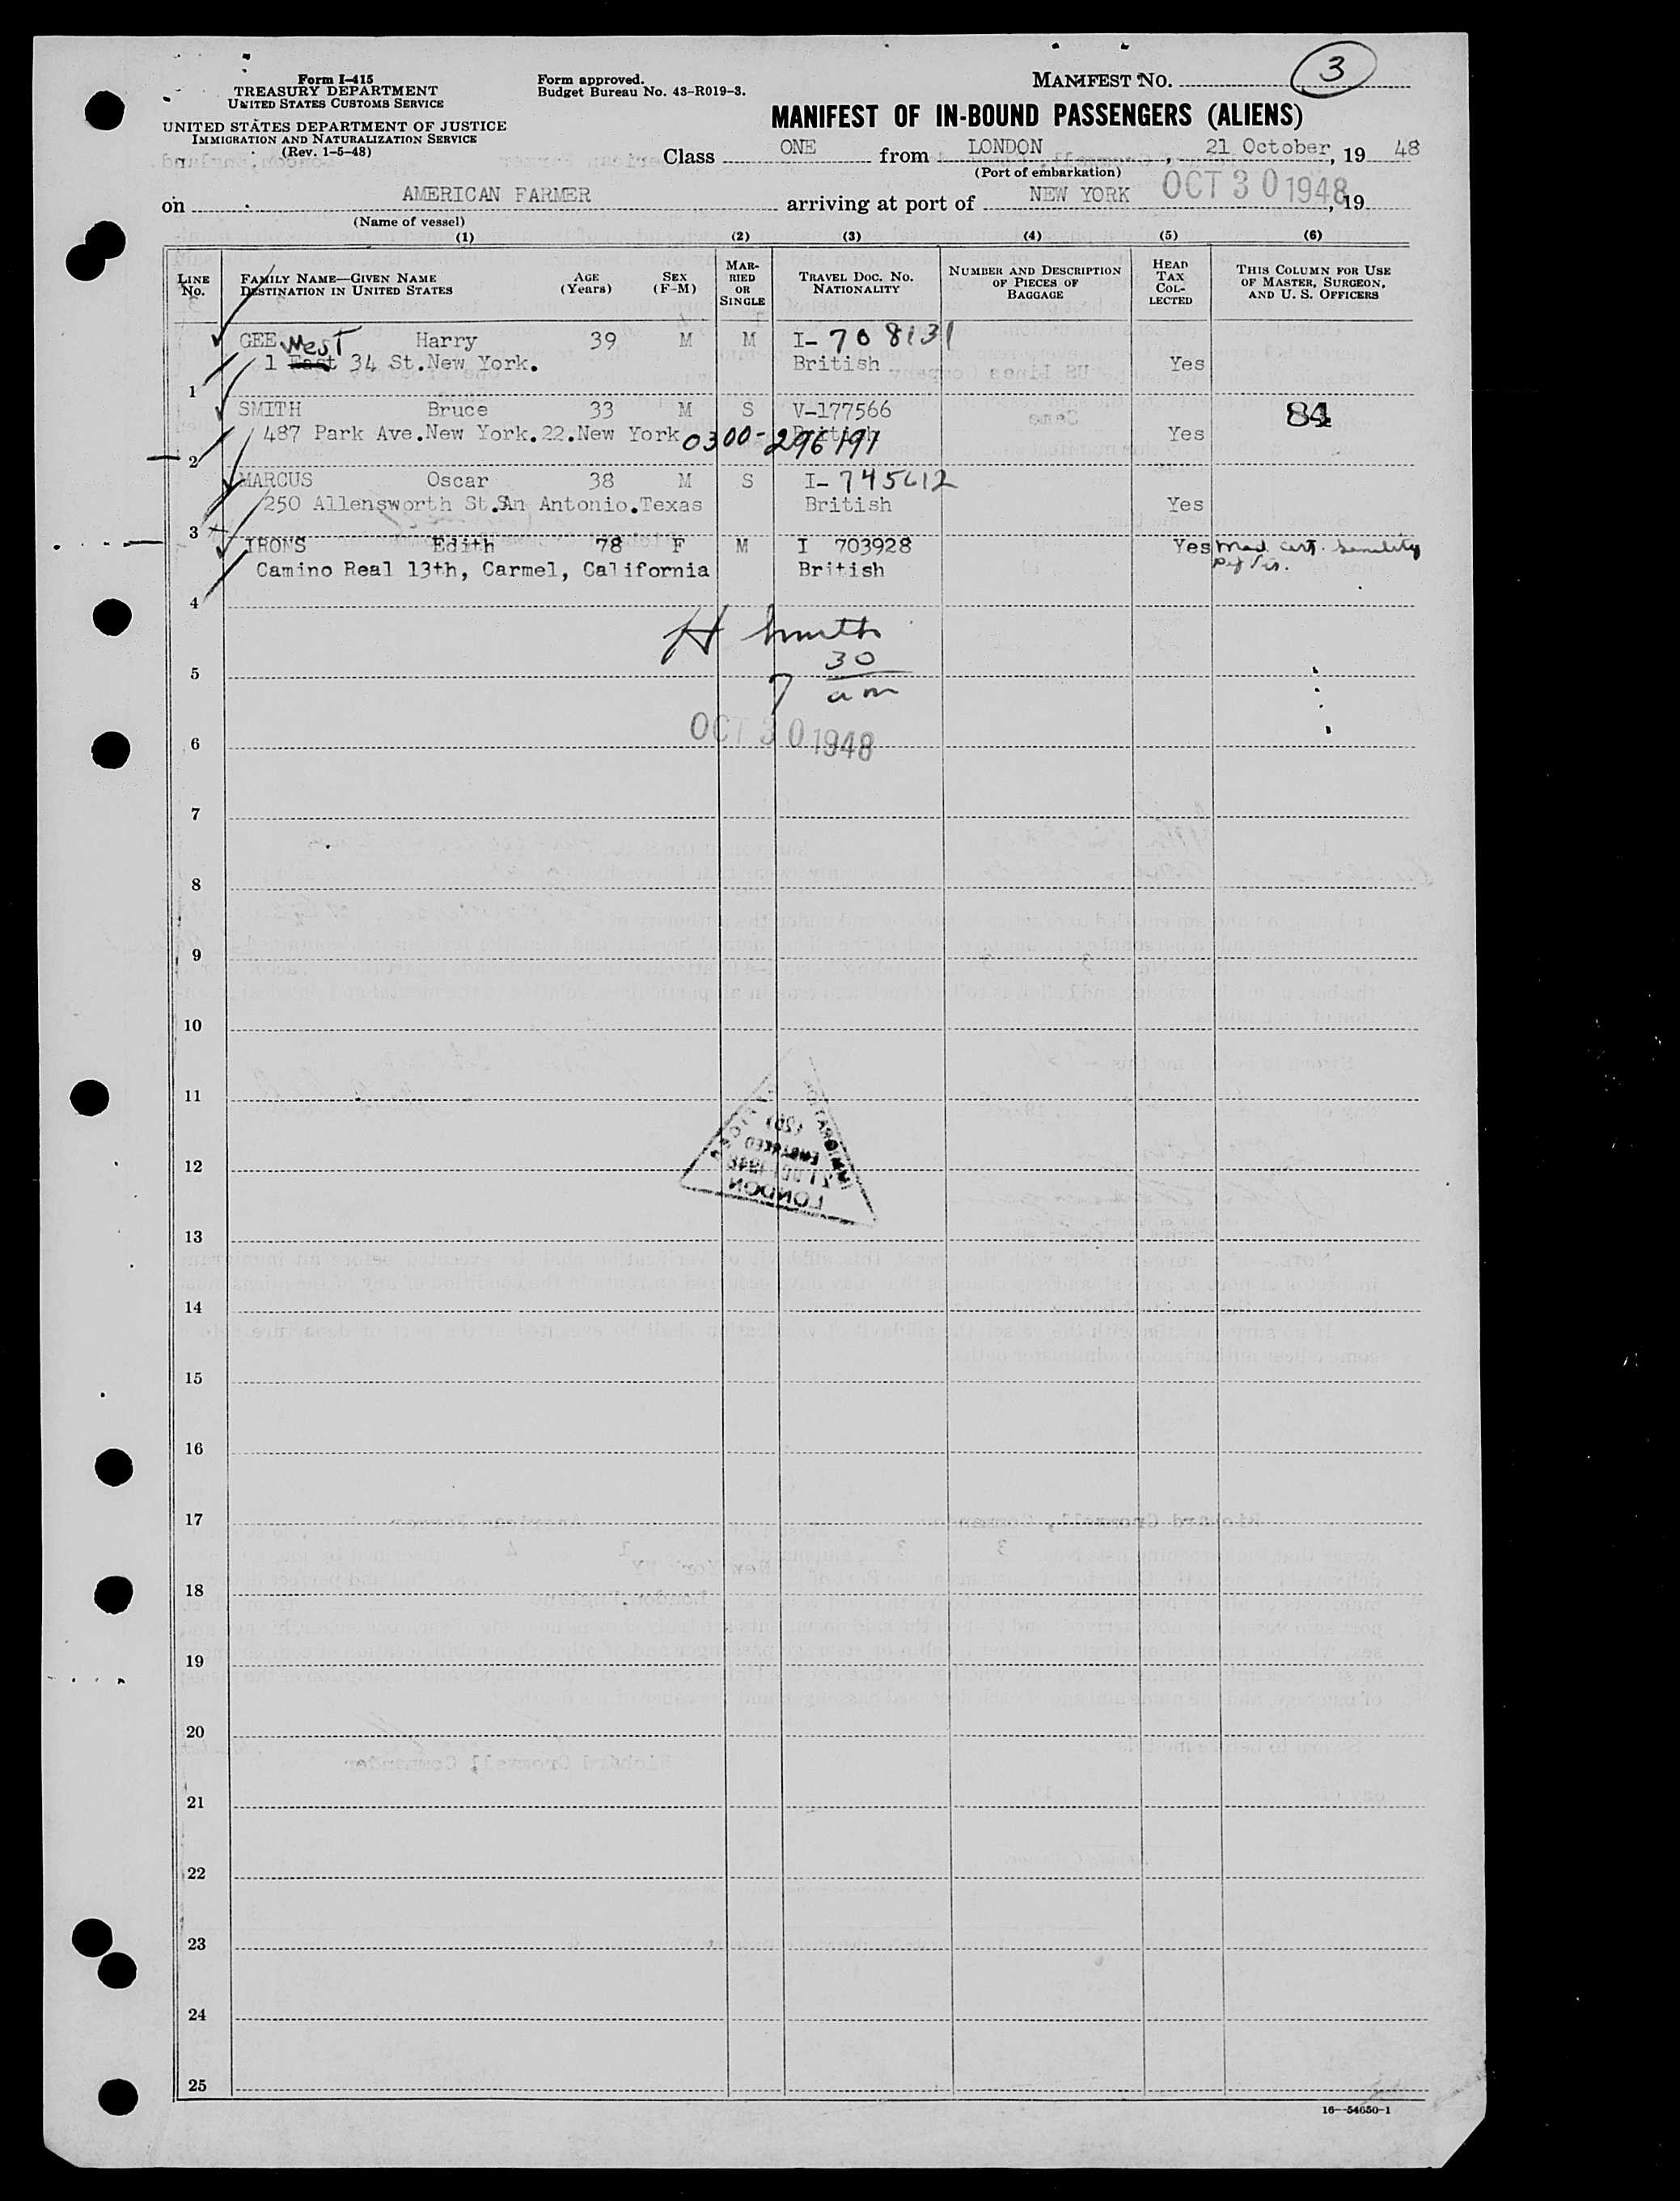 Form I-415
TREASURY DEPARTMENT
UNITED STATES CUSTOMS SERVICE
UNITED STATES DEPARTMENT OF JUSTICE
IMMIGRATION AND NATURALIZATION SERVICE
(Rev. 1-5-48)
Form approved.
Budget Bureau No. 43-R019-3.
MANIFEST NO. 3
MANIFEST OF IN-BOUND PASSENGERS (ALIENS)
Class ONE from LONDON, 21 October, 19 48
(Port of embarkation)
on AMERICAN FARMER arriving at port of NEW YORK OCT 30 1948, 19
(Name of vessel)
(1) (2) (3) (4) (5) (6)
LINE No.
FAMILY NAME—GIVEN NAME
DESTINATION IN UNITED STATES
AGE (Years)
SEX (F-M)
MARRIED OR SINGLE
TRAVEL DOC. NO.
NATIONALITY
NUMBER AND DESCRIPTION OF PIECES OF BAGGAGE
HEAD TAX COLLECTED
THIS COLUMN FOR USE OF MASTER, SURGEON, AND U. S. OFFICERS
GEE Harry 39 M M I-708131
1 East West 34 St.New York. British Yes
1
SMITH Bruce 33 M S V-177566 84
487 Park Ave.New York.22.New York 0300-296191 British Yes
2
MARCUS Oscar 38 M S I-745612
250 Allensworth St.San Antonio.Texas British Yes
3
IRONS Edith 78 F M I 703928 Yes Med cert. Senility
Camino Real 13th, Carmel, California British
4
H Smith
5
7 30 am
6
OCT 30 1948
7
8
9
10
11
12
LONDON
13
14
15
16
17
18
19
20
21
22
23
24
25
16—54650-1